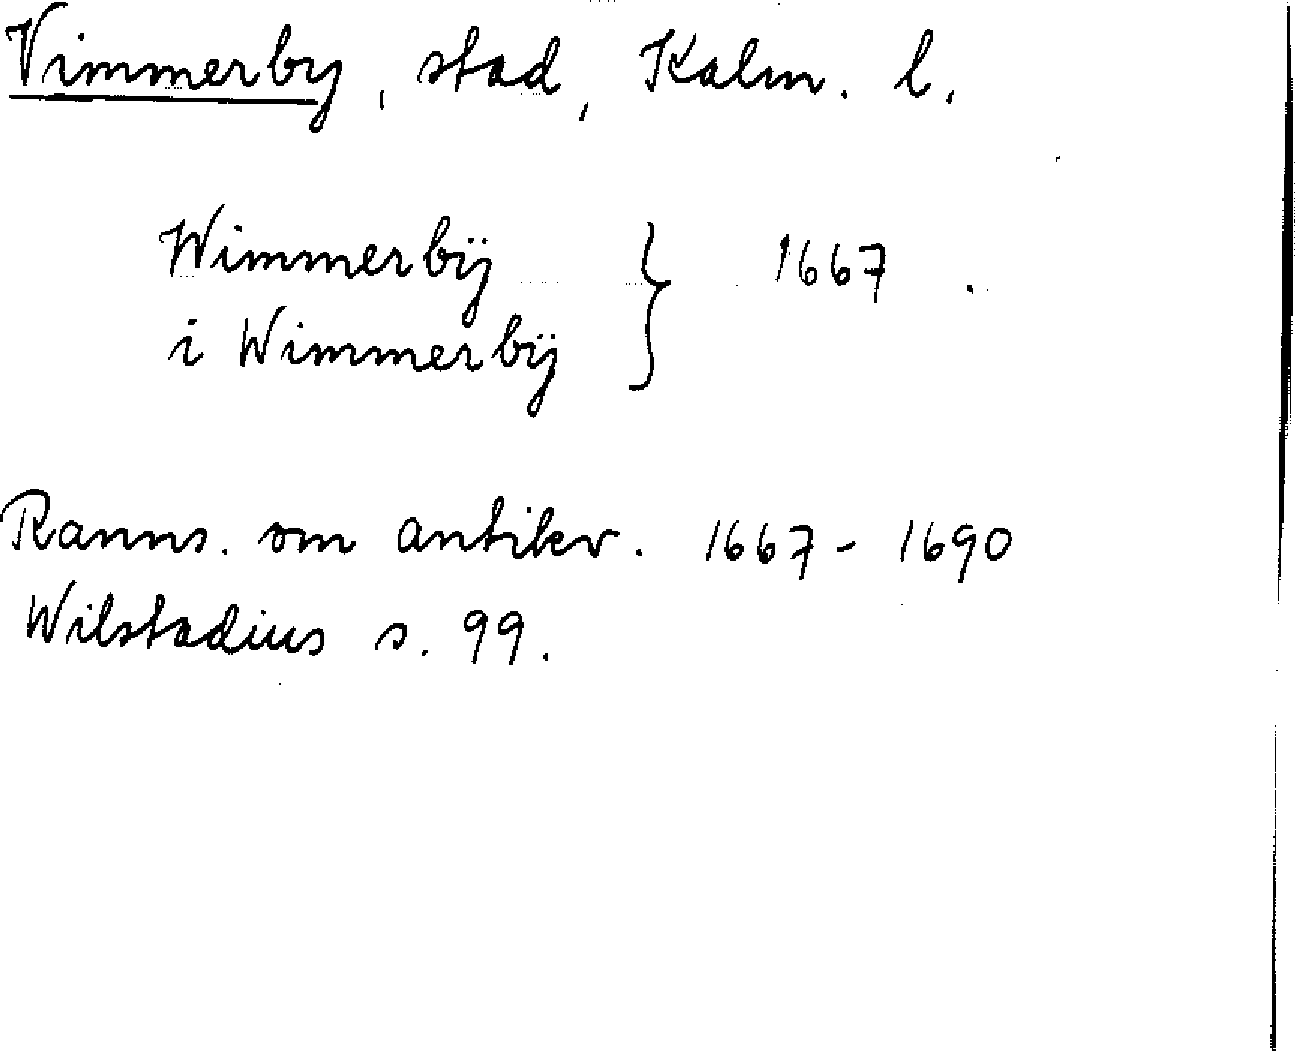 Vimmerby, stad, Kalm. l.
Wimmerbÿ } 1667.
i Wimmerbÿ
Ranns. om antikv. 1667-1690
Wilstadius s. 99.